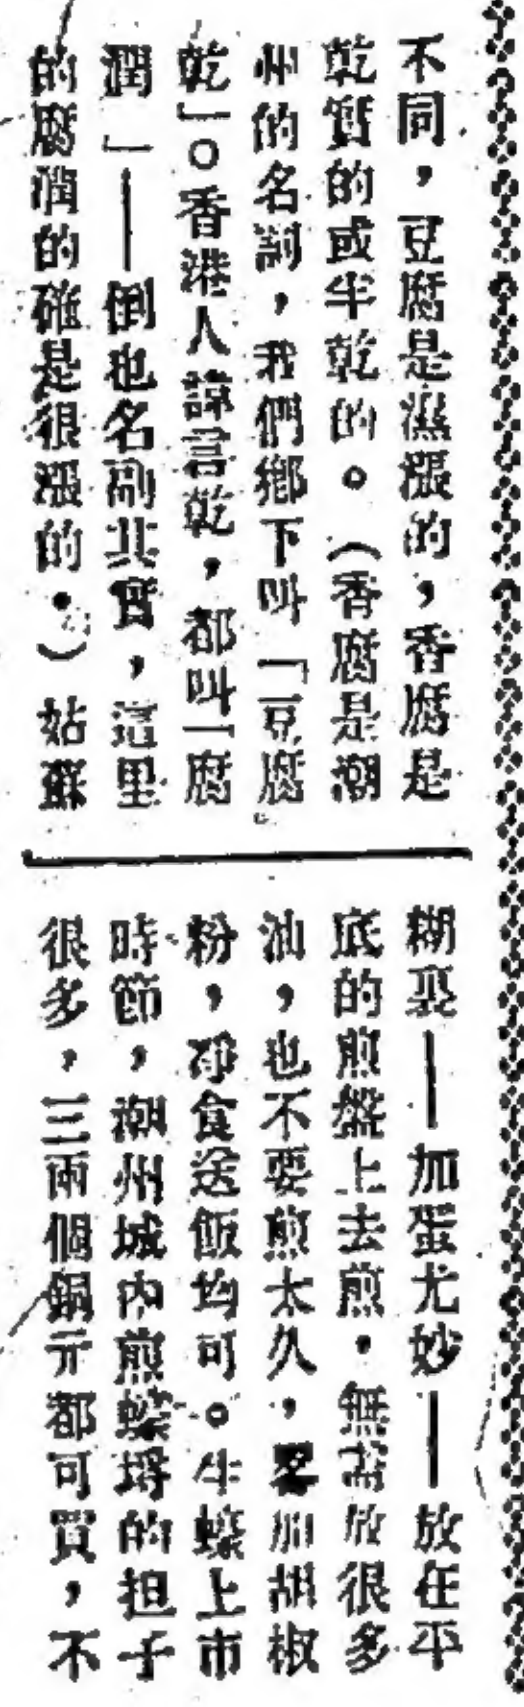 不同，豆腐是濕漲的，香腐是
乾質的或半乾的。（香腐是潮
州的名詞，我們鄉下叫「豆腐
乾」。香港人諱言乾，都叫「腐
潤」——倒也名副其實，這里
的腐潤的確是很漲的。）姑蘇
糊裏——加蛋尤妙——放在平
底的煎盤上去煎，無需放很多
油，也不要煎太久，畧加胡椒
粉，淨食送飯均可。生蠔上市
時節，潮州城內煎蠔烙的担子
很多，三兩個銅元都可買，不